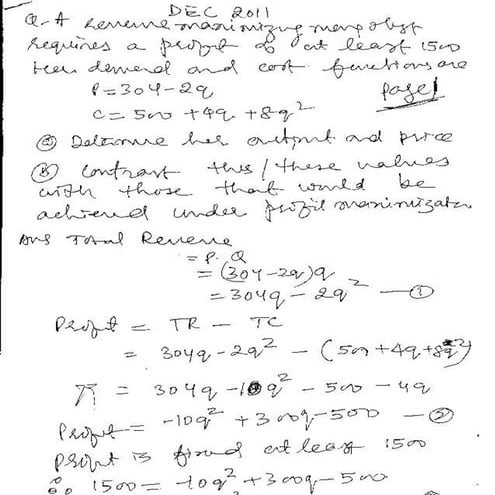 DEC 2011
Q. A Revenue maximizing monopolist
requires a profit of at least 1500
Her demand and cost functions are
P = 304 - 2q
Page 1
C = 500 + 4q + 8q²
(a) Determine her output and price
(B) Contrast this/these values
with those that would be
achieved under profit maximization
Ans Total Revenue
= P. Q
= (304 - 2q)q
= 304q - 2q² — (1)
Profit = TR - TC
= 304q - 2q² - (500 + 4q + 8q²)
π = 304q - 10q² - 500 - 4q
Profit = -10q² + 300q - 500 — (2)
Profit is fixed at least 1500
∴ 1500 = -10q² + 300q - 500